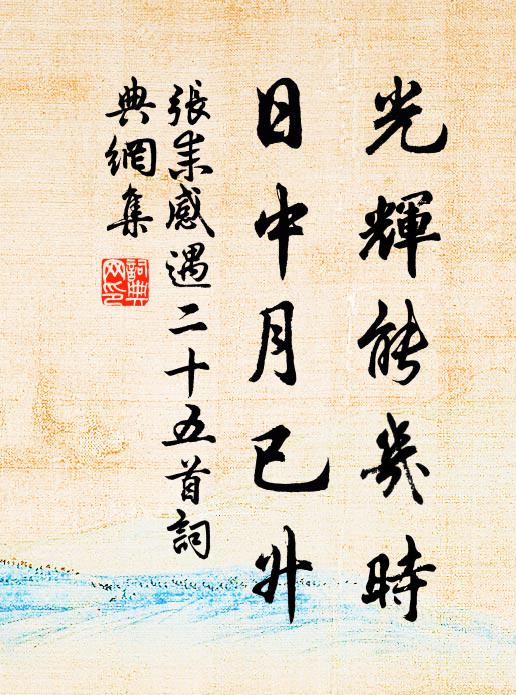 光輝能幾時
日中月已升
張耒感遇二十五首詞
典網集
詞典網印